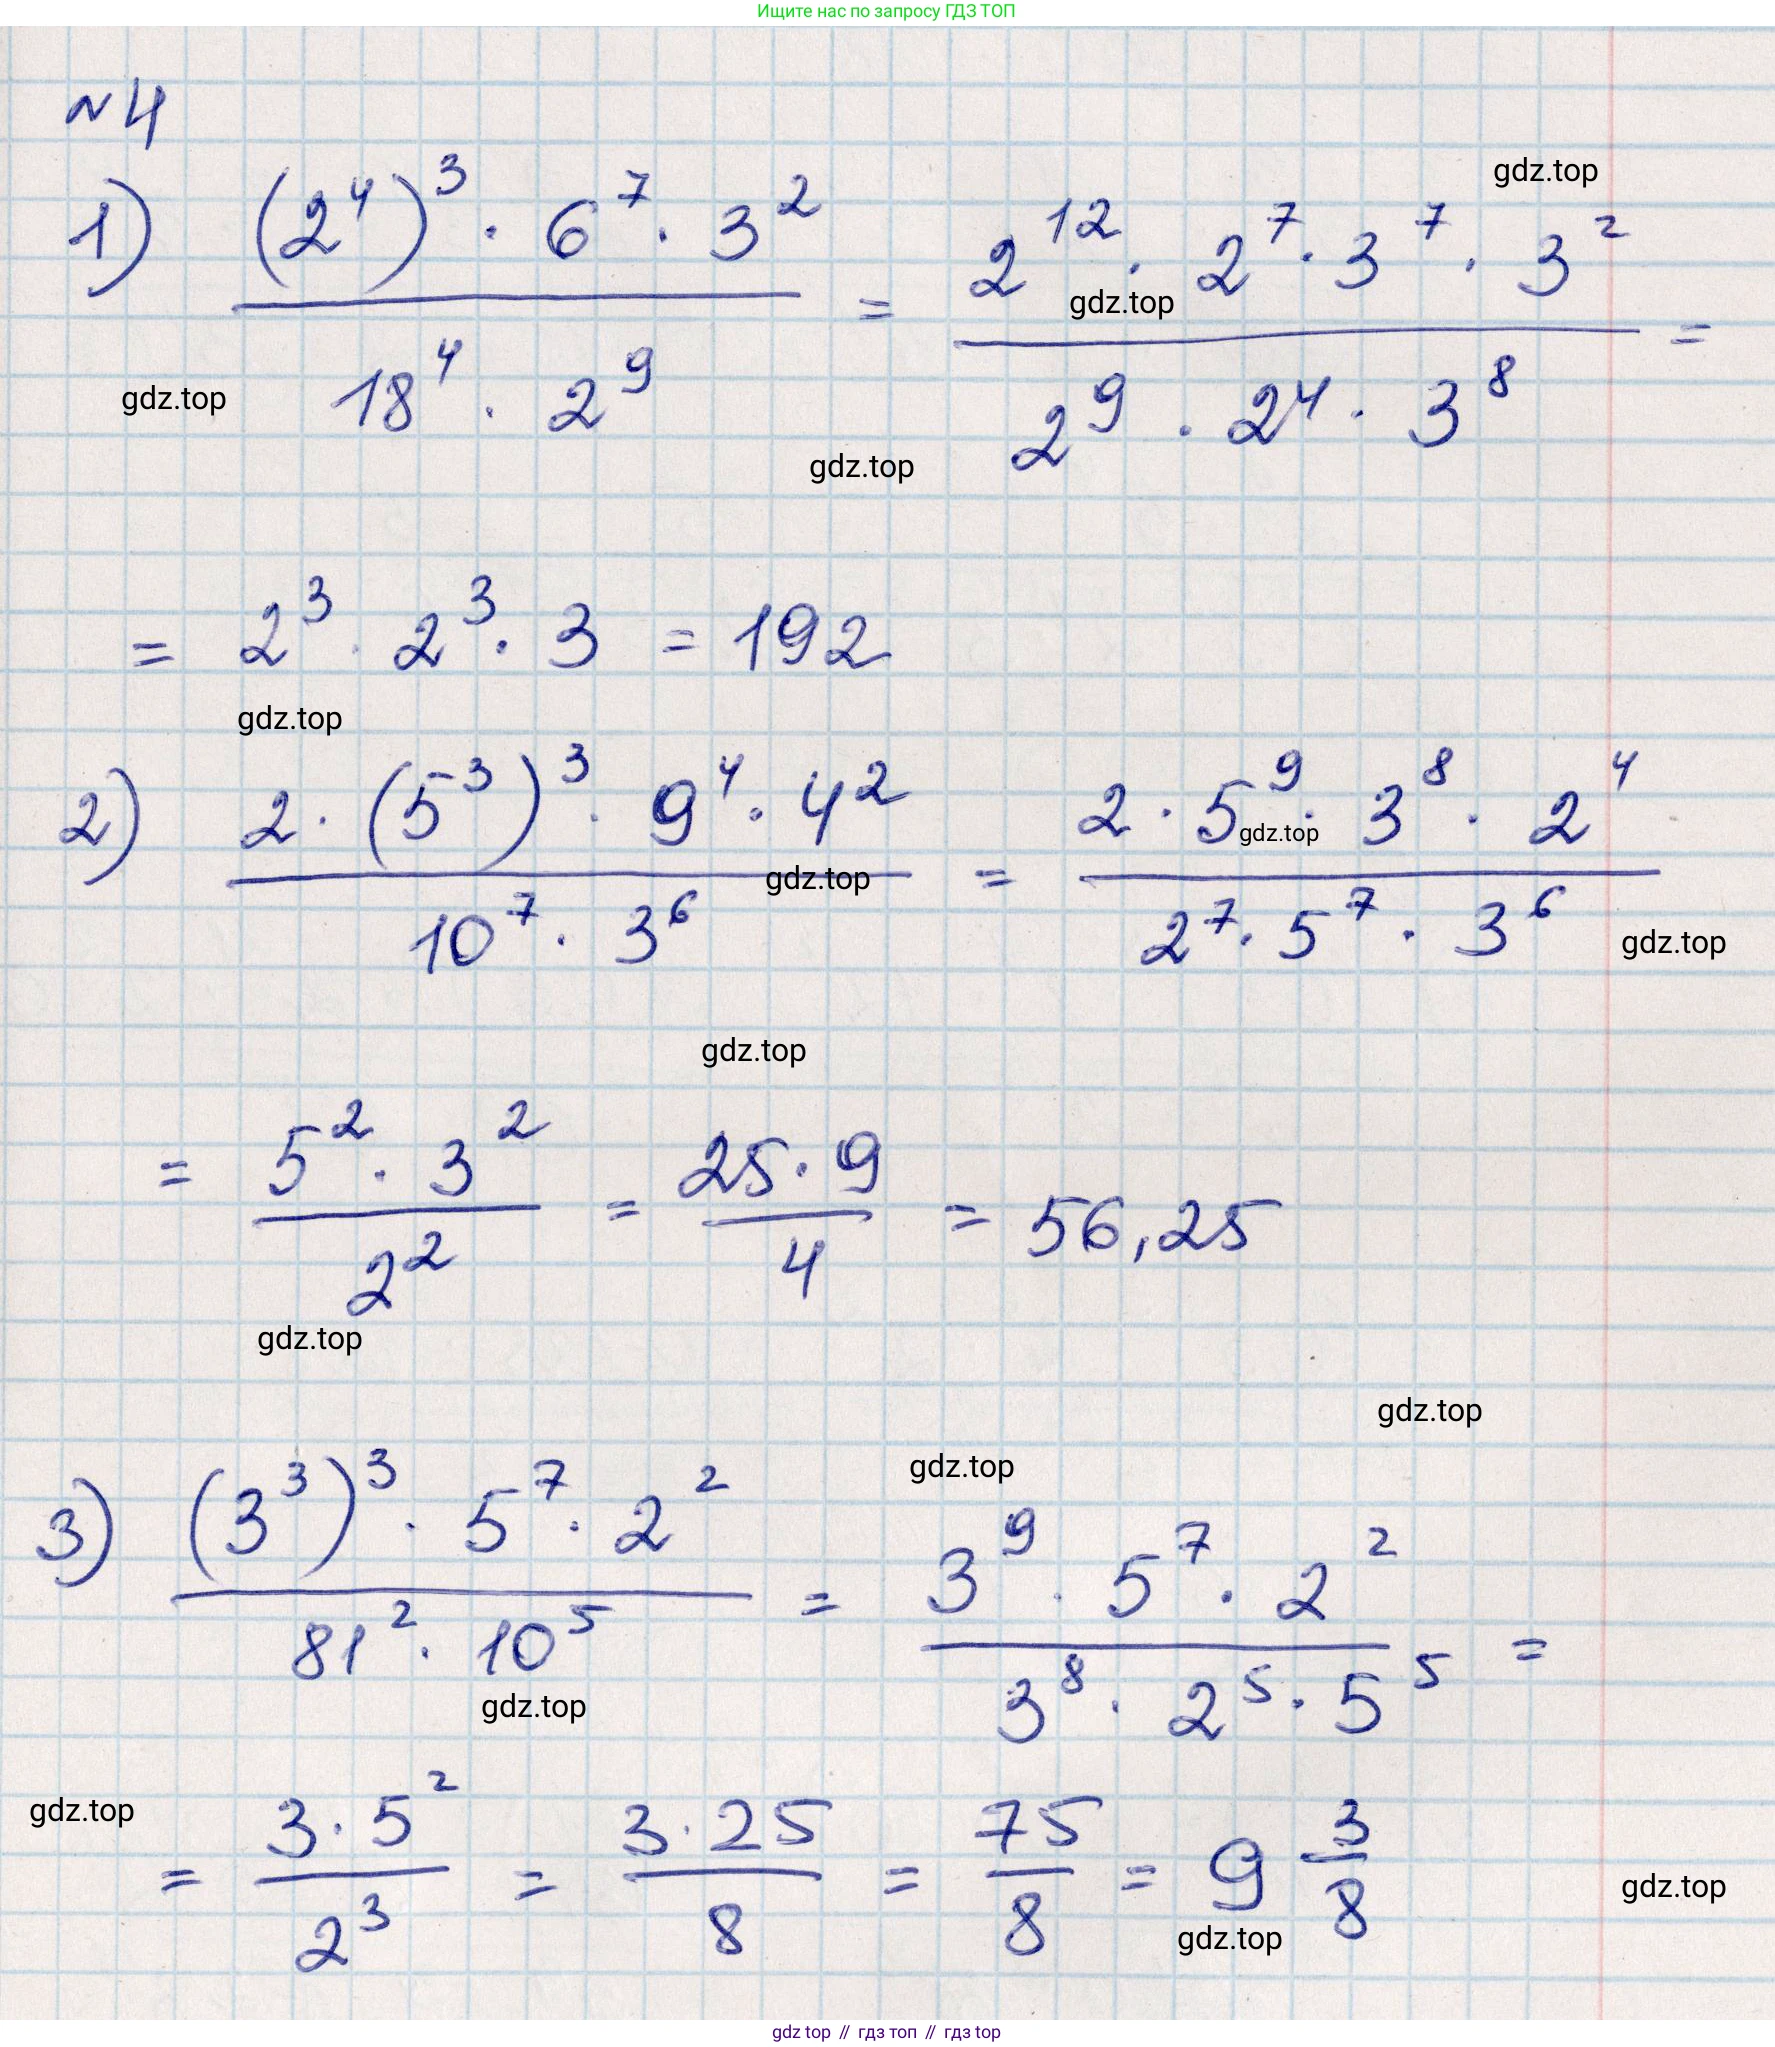 Ищите нас по запросу ГДЗ ТОП
№4
gdz.top
1) ((2^4)^3 · 6^7 · 3^2) / (18^4 · 2^9) = (2^12 · 2^7 · 3^7 · 3^2) / (2^9 · 2^4 · 3^8) =
gdz.top
gdz.top
gdz.top
= 2^3 · 2^3 · 3 = 192
gdz.top
2) (2 · (5^3)^3 · 9^4 · 4^2) / (10^7 · 3^6) = (2 · 5^9 · 3^8 · 2^4) / (2^7 · 5^7 · 3^6)
gdz.top
gdz.top
gdz.top
gdz.top
= (5^2 · 3^2) / 2^2 = (25 · 9) / 4 = 56,25
gdz.top
gdz.top
gdz.top
3) ((3^3)^3 · 5^7 · 2^2) / (81^2 · 10^5) = (3^9 · 5^7 · 2^2) / (3^8 · 2^5 · 5^5) =
gdz.top
gdz.top
= (3 · 5^2) / 2^3 = (3 · 25) / 8 = 75 / 8 = 9 3/8
gdz.top
gdz.top
gdz top // гдз топ // гдз top